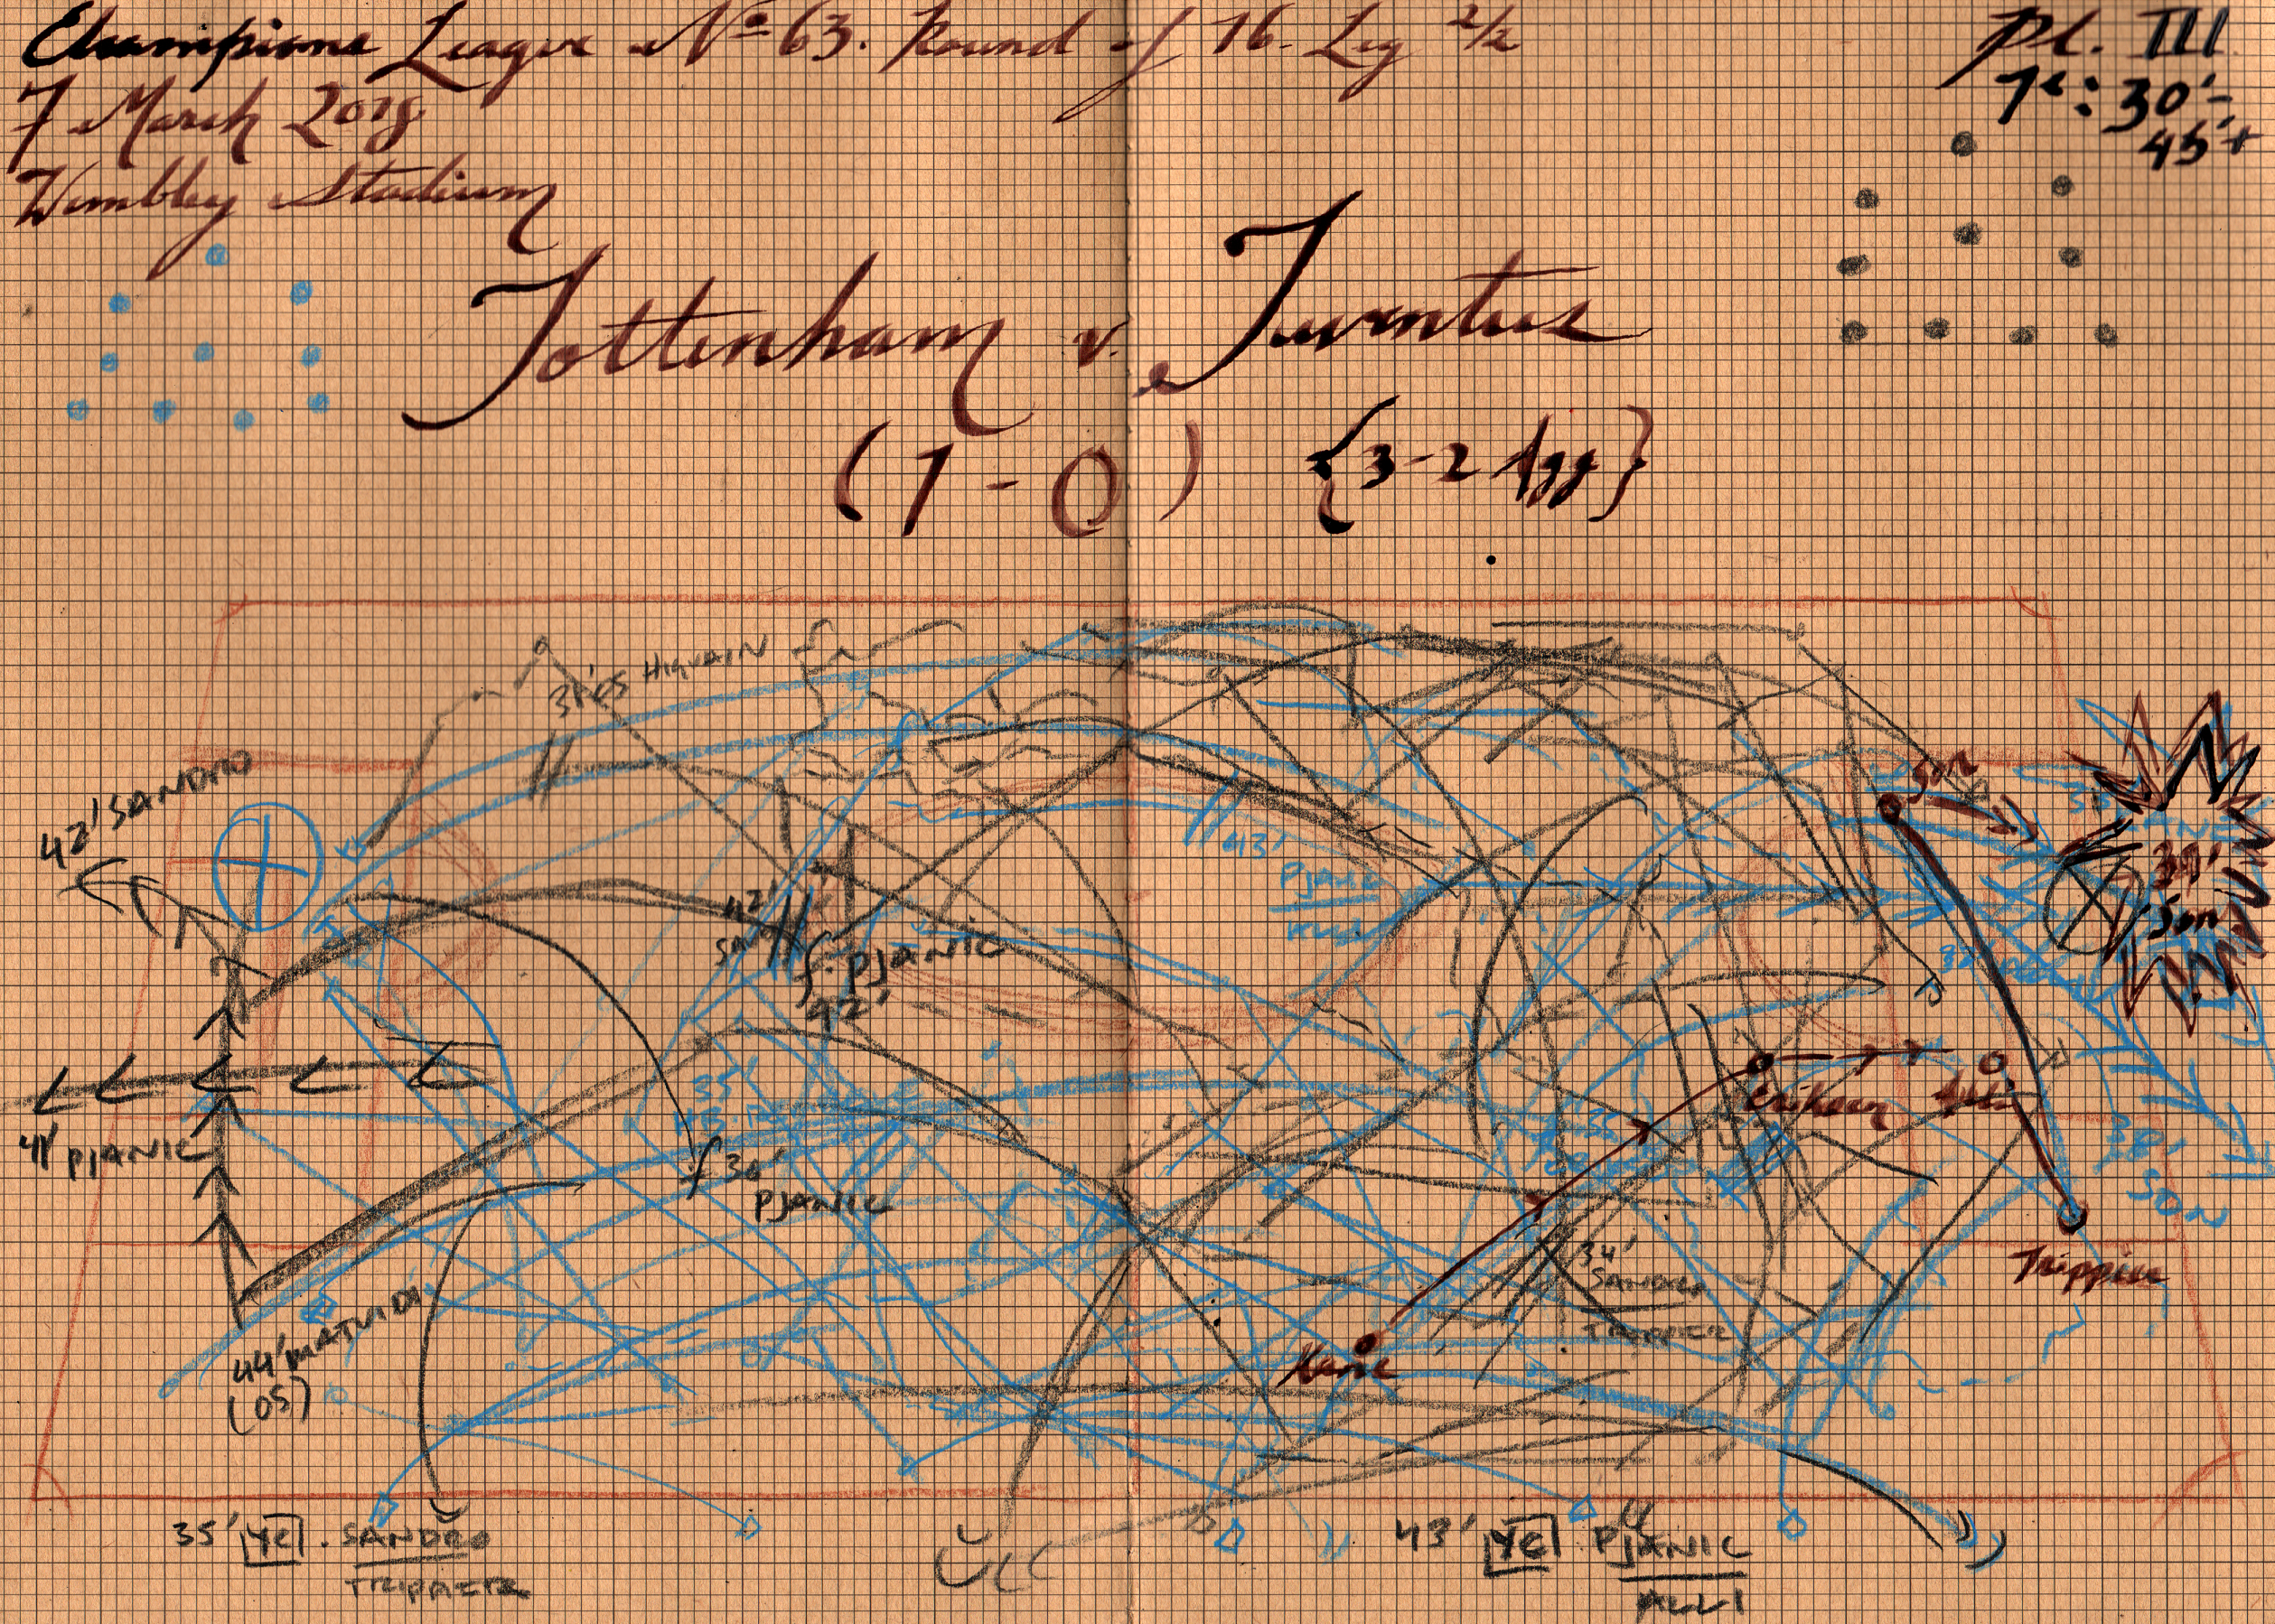 Champions League Nº 63. Round of 16. Leg 2/2
7 March 2018
Wembley Stadium
Pl. III
1ᵗ: 30'-
45'+
Tottenham v. Juventus
(1-0) {3-2 Agg}
31'05 HIGUAIN
42' SANDRO
Son
39'
Son
43'
PJANIC
42'
f. PJANIC
42'
41' PJANIC
35'
f 36'
PJANIC
Eriksen
Alli
38'
SON
Trippier
34'
SANDRO
TRIPPIER
Kane
44' MATUIDI
(OS)
35' [YC]. SANDRO
TRIPPIER
43' [YC] PJANIC
ALLI